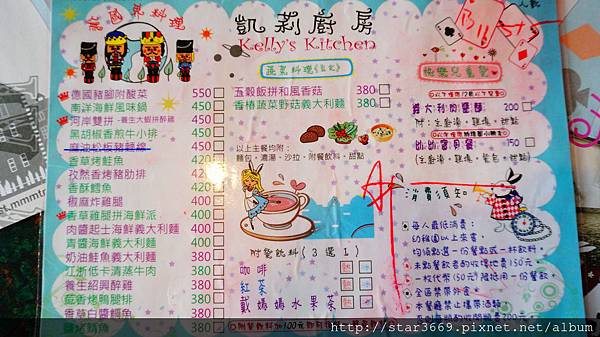 凱莉廚房
Kelly's Kitchen
異國風料理
德國豬腳附酸菜 550
南洋海鮮風味鍋 450
河岸雙拼-養生大蝦拼醉雞 450
黑胡椒香煎牛小排 450
麻油松板豬麵線 450
香草烤鮭魚 420
孜然香烤豬肋排 420
香酥鱈魚 420
椒麻炸雞腿 400
香草雞腿拼海鮮派 400
肉醬起士海鮮義大利麵 400
青醬海鮮義大利麵 400
奶油鮭魚義大利麵 380
江浙低卡清蒸牛肉 380
養生紹興醉雞 380
茴香烤鴨腿排 380
香草白醬鱈魚 380
鹽烤鯖魚 380
蔬菜料理(蛋奶)
五穀飯拼和風香菇 380
香椿蔬菜野菇義大利麵 380
以上主餐均附：
麵包、濃湯、沙拉、附餐飲料、甜點
附餐飲料(3選1)
咖啡 熱 冰
紅茶 熱 冰
戴媽媽水果茶 熱 冰
快樂兒童餐
義大利肉醬麵 200
消費須知
每人最低消費：
均須點選一份餐點或一杯飲料
全區禁帶外食。
本餐廳禁止攜帶酒類
http://star3669.pixnet.net/album